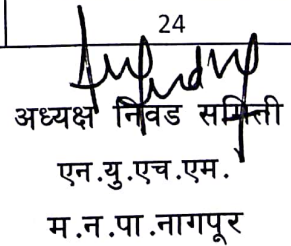 24
अध्यक्ष निवड समिती
एन.यु.एच.एम.
म.न.पा.नागपूर